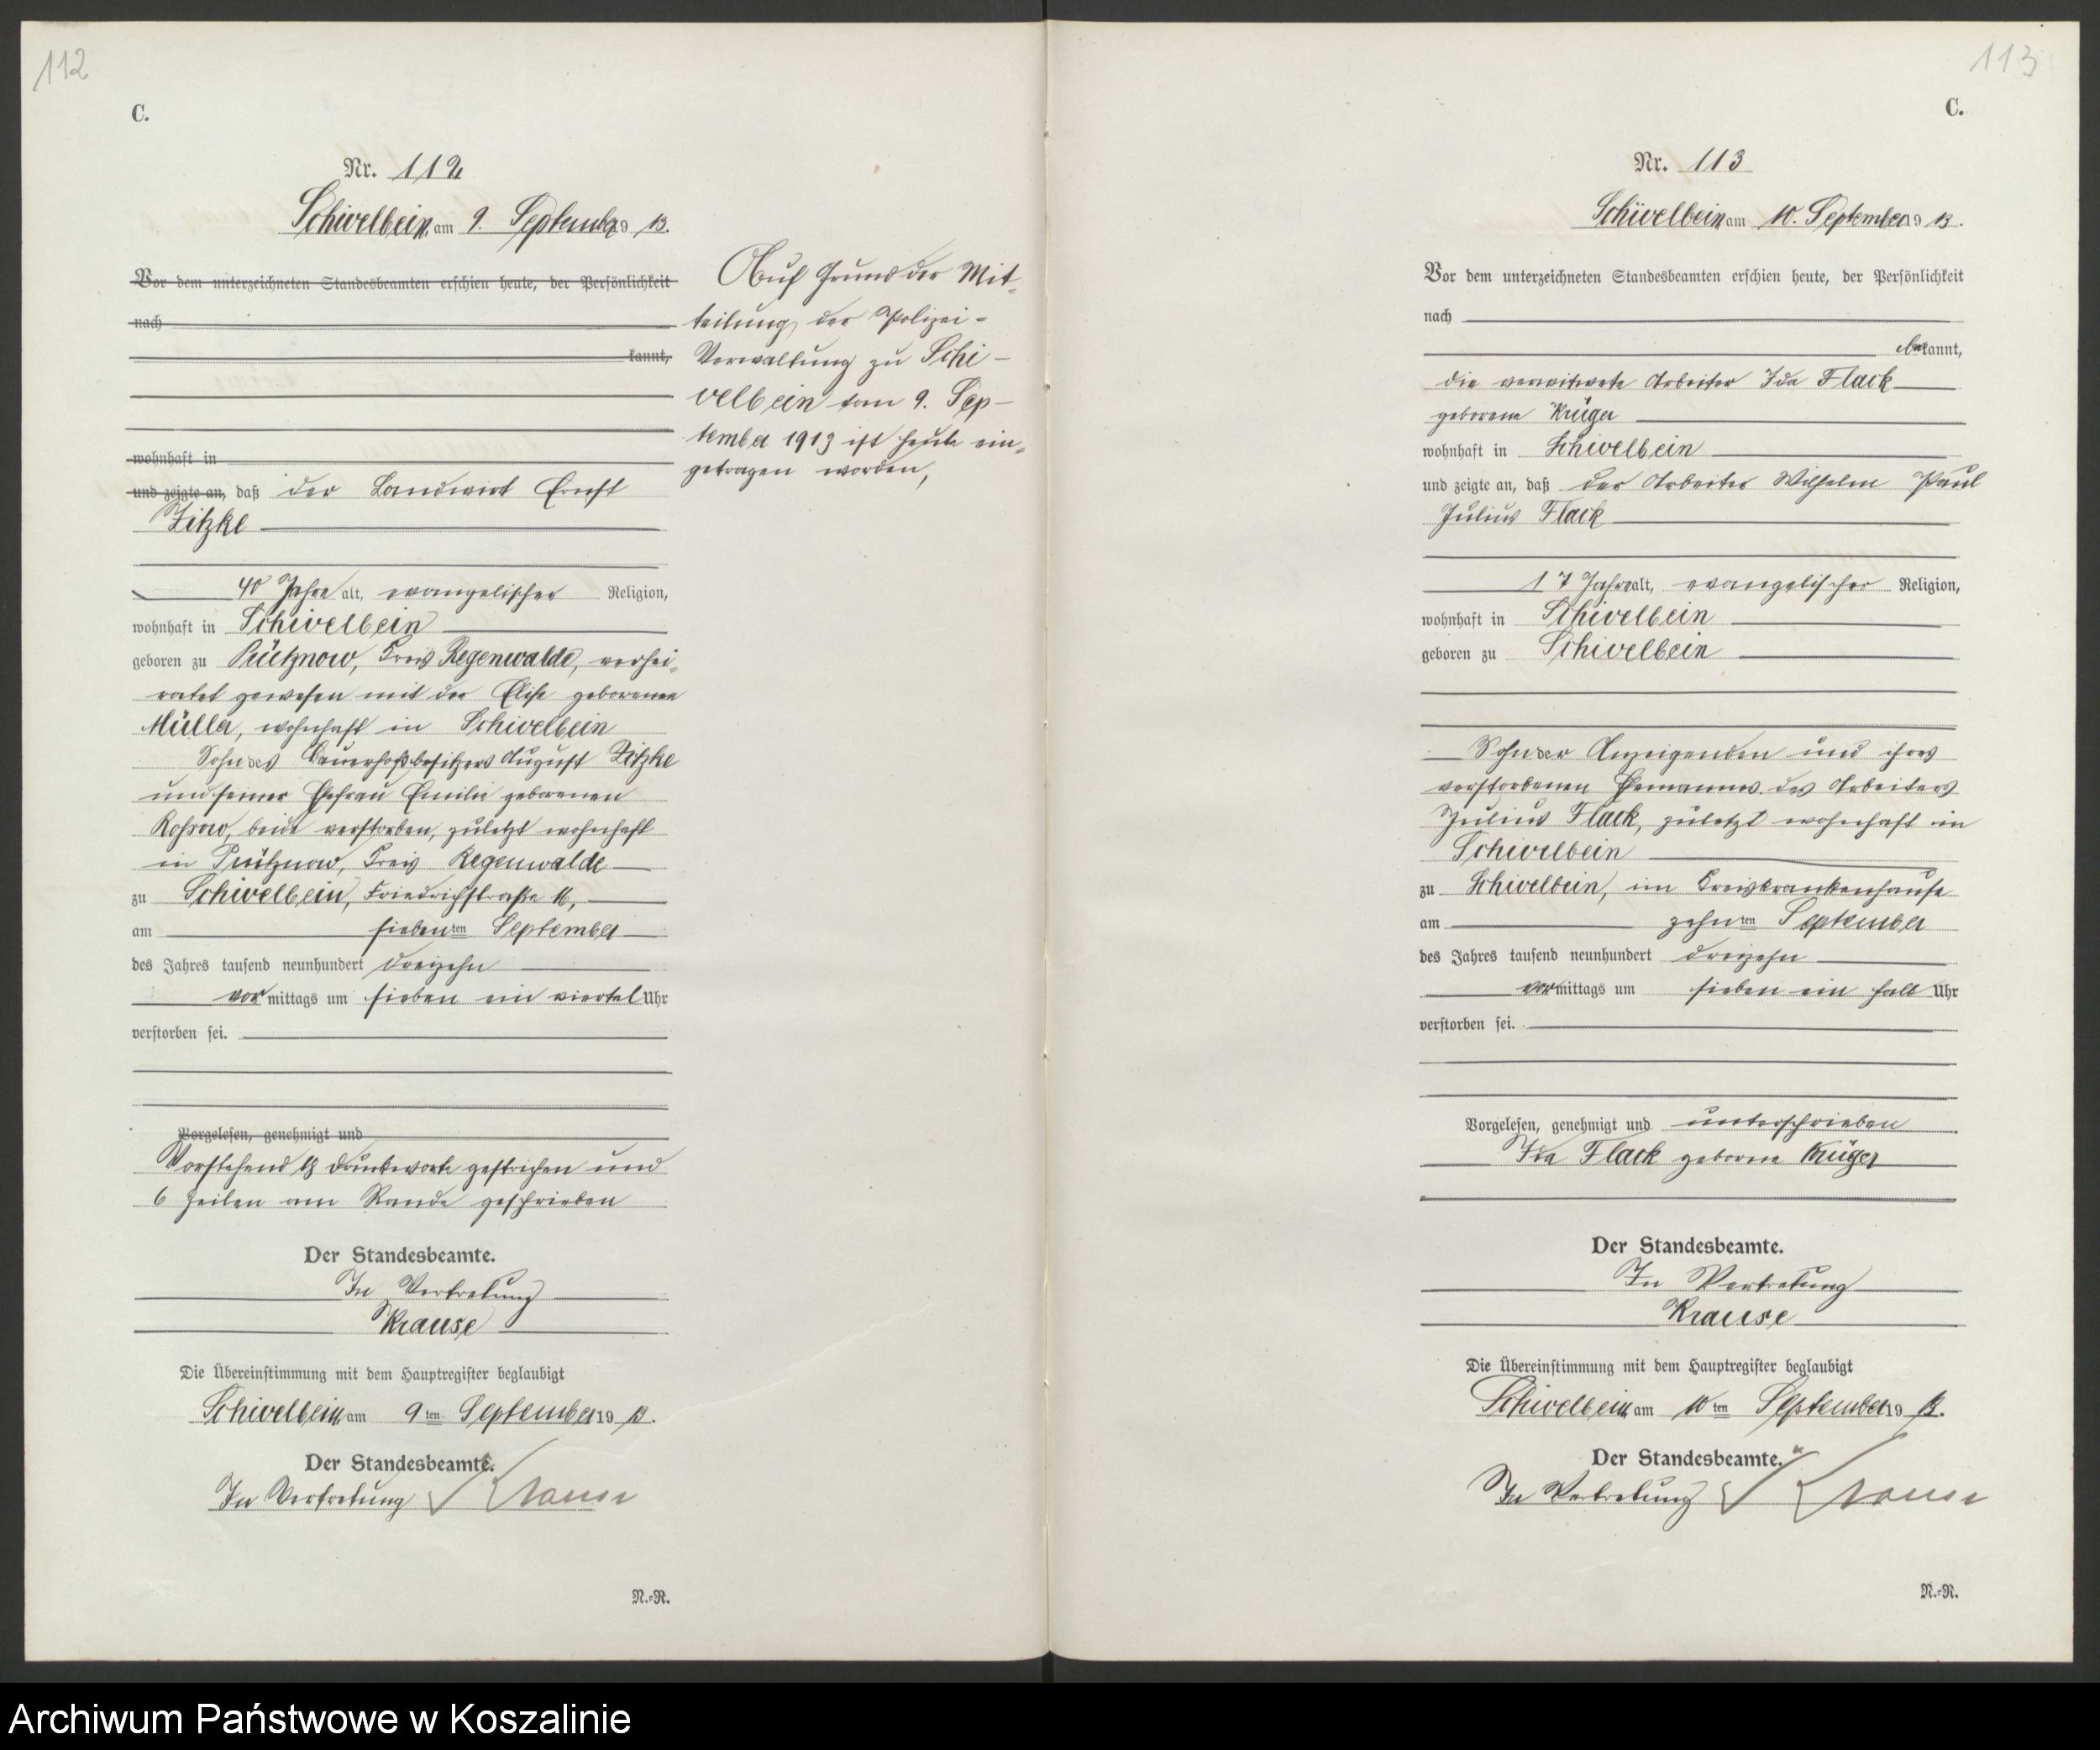 112
C.
Nr. 112
Schivelbein am 9. September 19 13.
Vor dem unterzeichneten Standesbeamten erschien heute, der Persönlichkeit
nach
kannt,
wohnhaft in
und zeigte an, daß der Landwirt Ernst
Zitzke
40 Jahre alt, evangelischer Religion,
wohnhaft in Schivelbein
geboren zu Prütznow, Kreis Regenwalde, verhei-
ratet gewesen mit der Elise geborenen
Müller, wohnhaft in Schivelbein
Sohn des Bauerhofsbesitzers August Zitzke
und seiner Ehefrau Emilie geborenen
beide verstorben, zuletzt wohnhaft
in Prütznow, Kreis Regenwalde
zu Schivelbein, Friedrichstraße
am siebenten September
des Jahres tausend neunhundert dreizehn
vor mittags um sieben ein viertel Uhr
verstorben sei.
Vorgelesen, genehmigt und
Vorstehend Druckworte gestrichen und
6 Zeilen am Rande geschrieben
Der Standesbeamte.
In Vertretung
Krause
Die Übereinstimmung mit dem Hauptregister beglaubigt
Schivelbein am 9ten September 19 13.
Der Standesbeamte.
In Vertretung Krause
N.-R.
Auf Grund der Mit-
teilung der Polizei-
Verwaltung zu Schi-
velbein vom 9. Sep-
tember 1913 ist heute ein-
getragen worden,
113
C.
Nr. 113
Schivelbein am 10. September 19 13.
Vor dem unterzeichneten Standesbeamten erschien heute, der Persönlichkeit
nach
be kannt,
die verwitwete Arbeiter Ida Flack
geborene Krüger
wohnhaft in Schivelbein
und zeigte an, daß der Arbeiter Wilhelm Paul
Julius Flack
17 Jahre alt, evangelischer Religion,
wohnhaft in Schivelbein
geboren zu Schivelbein
Sohn der Anzeigenden und ihres
verstorbenen Ehemannes des Arbeiters
Julius Flack, zuletzt wohnhaft in
Schivelbein
zu Schivelbein, im Kreiskrankenhause
am zehnten September
des Jahres tausend neunhundert dreizehn
vor mittags um sieben ein halb Uhr
verstorben sei.
Vorgelesen, genehmigt und unterschrieben
Ida Flack geborene Krüger
Der Standesbeamte.
In Vertretung
Krause
Die Übereinstimmung mit dem Hauptregister beglaubigt
Schivelbein am 10ten September 19 13.
Der Standesbeamte.
In Vertretung Krause
N.-R.
Archiwum Państwowe w Koszalinie